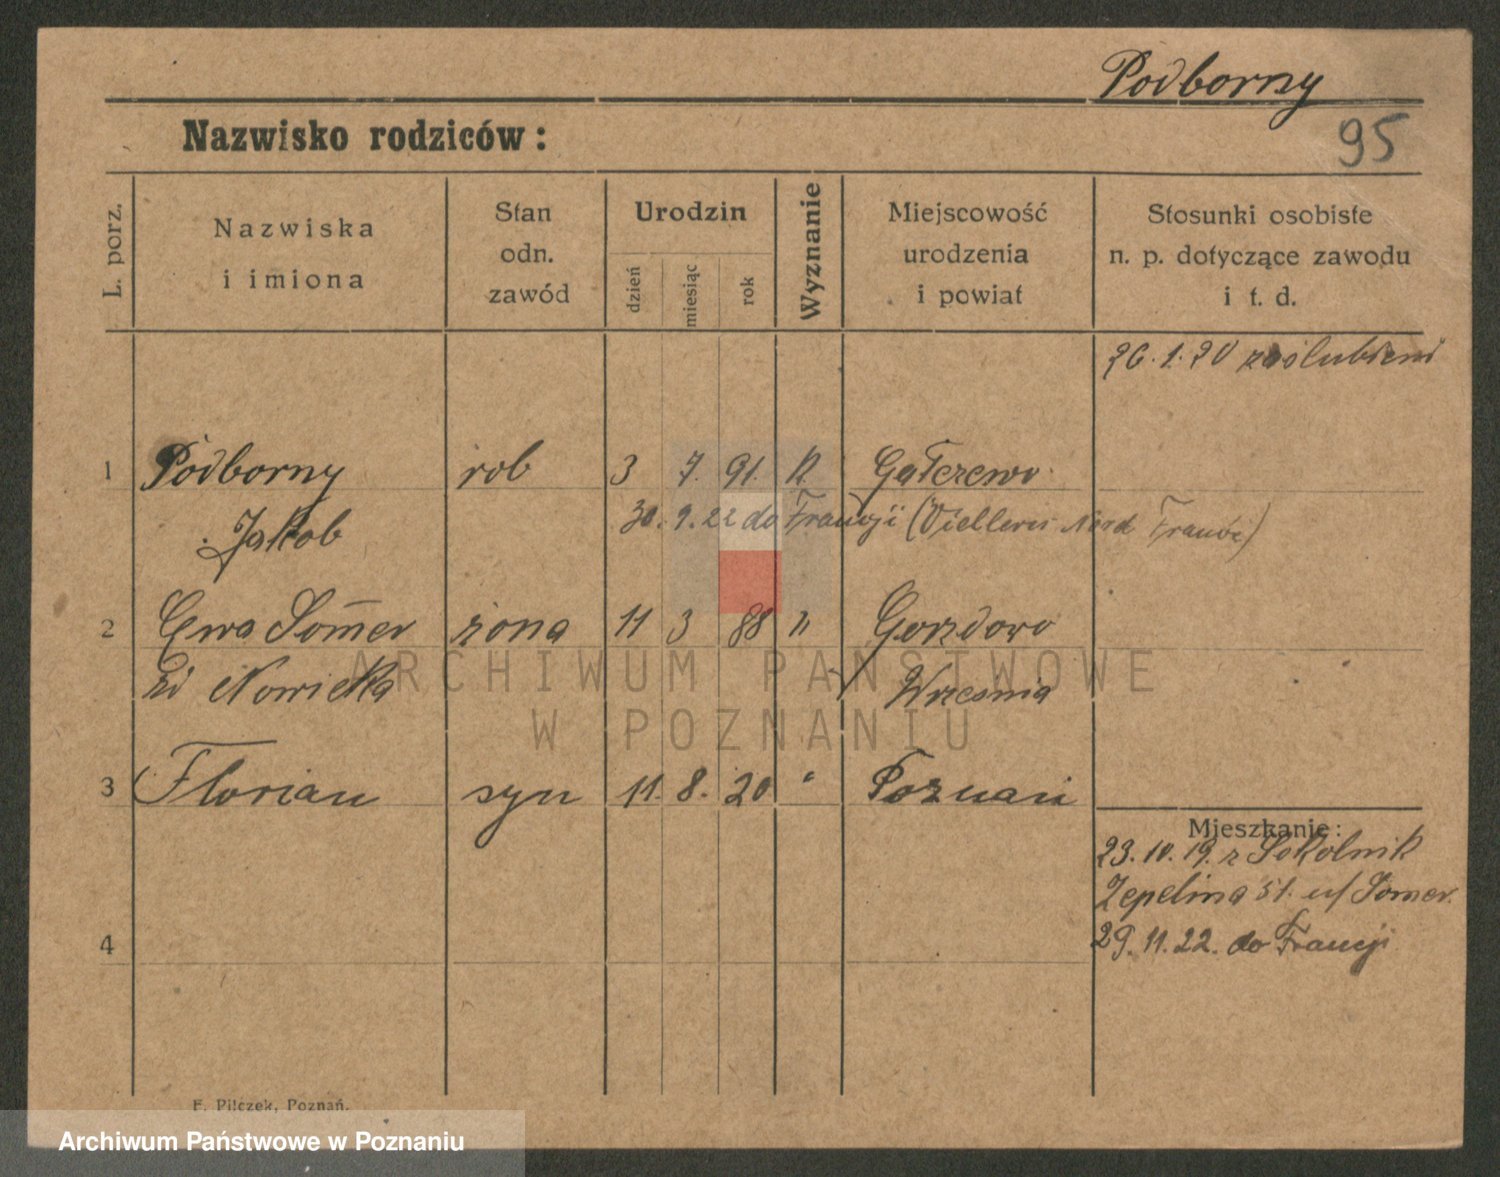 Podborny
95
Nazwisko rodziców:
L. porz.
Nazwiska
i imiona
Stan
odn.
zawód
Urodzin
dzień
miesiąc
rok
Wyznanie
Miejscowość
urodzenia
i powiat
Stosunki osobiste
n. p. dotyczące zawodu
i t. d.
26.1.20 zaślubieni
1 Podborny rob 3 7. 91. K
Jakob
30. 9. 22 do Francji (
2 Ewa Somer żona 11 3 88 "
Nowicka Września
3 Florian syn 11. 8. 20 " Poznań
Mieszkanie:
23.10.19. z Sokolnik
Zepelina 51. u/ Somer.
29.11.22. do Francji
4
F. Pilczek, Poznań.
ARCHIWUM PAŃSTWOWE
W POZNANIU
Archiwum Państwowe w Poznaniu